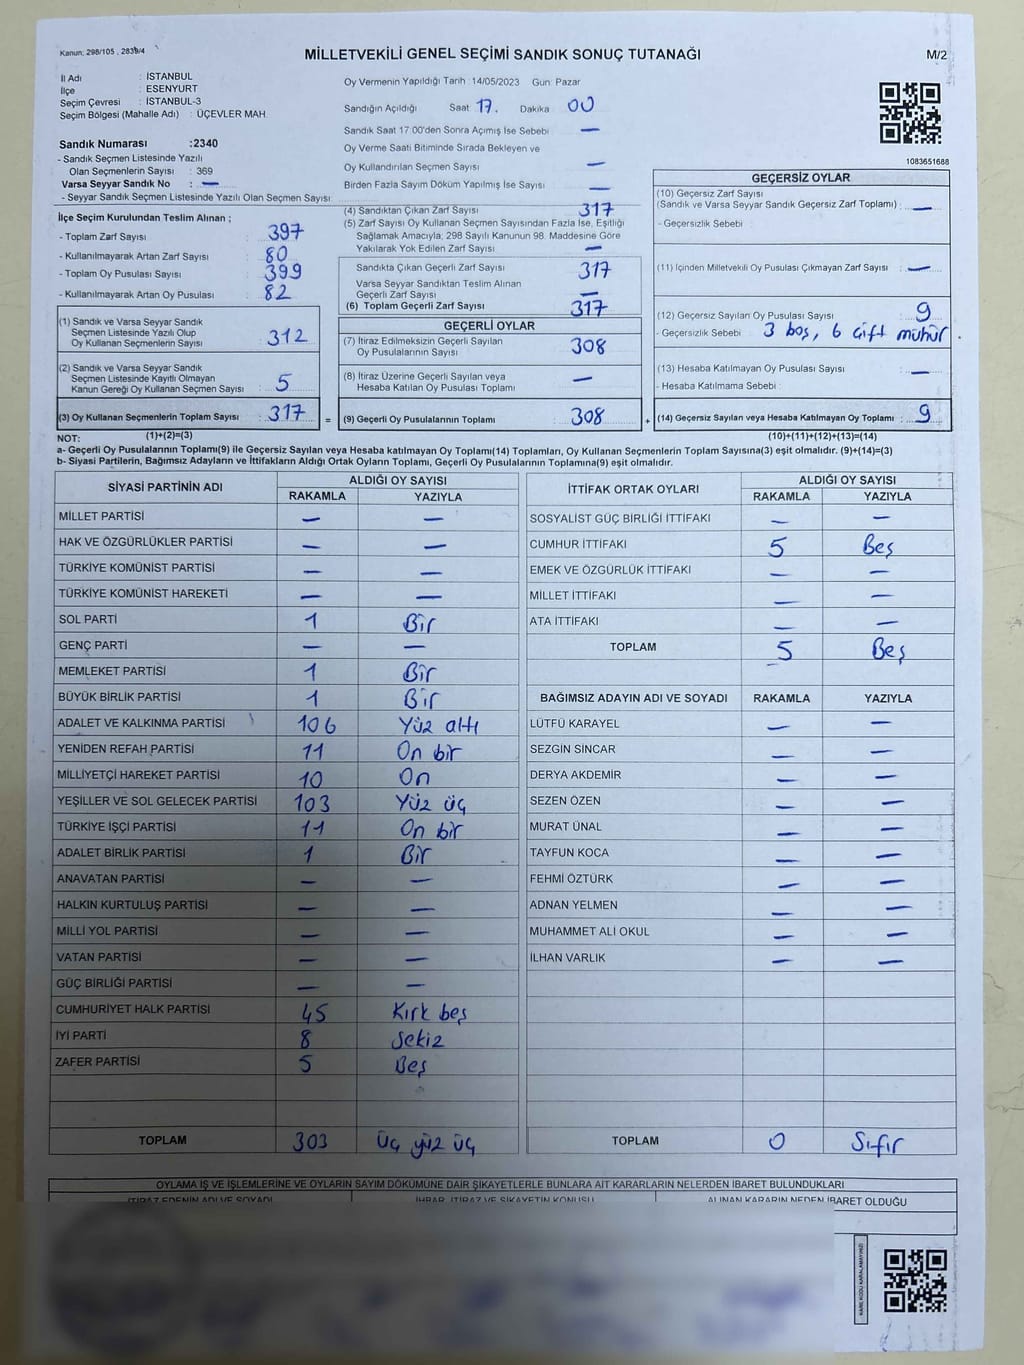 Kanun: 298/105 , 2839/4
MİLLETVEKİLİ GENEL SEÇİMİ SANDIK SONUÇ TUTANAĞI
M/2
İl Adı : İSTANBUL
İlçe : ESENYURT
Seçim Çevresi : İSTANBUL-3
Seçim Bölgesi (Mahalle Adı) : ÜÇEVLER MAH.
Sandık Numarası :2340
- Sandık Seçmen Listesinde Yazılı
Olan Seçmenlerin Sayısı : 369
Varsa Seyyar Sandık No : —
- Seyyar Sandık Seçmen Listesinde Yazılı Olan Seçmen Sayısı :
Oy Vermenin Yapıldığı Tarih :14/05/2023 Gün: Pazar
Sandığın Açıldığı Saat 17. Dakika 00
Sandık Saat 17:00'den Sonra Açımış İse Sebebi —
Oy Verme Saati Bitiminde Sırada Bekleyen ve
Oy Kullandırılan Seçmen Sayısı —
Birden Fazla Sayım Döküm Yapılmış İse Sayısı —
1083651688
İlçe Seçim Kurulundan Teslim Alınan ;
- Toplam Zarf Sayısı : 397
- Kullanılmayarak Artan Zarf Sayısı : 80
- Toplam Oy Pusulası Sayısı : 399
- Kullanılmayarak Artan Oy Pusulası : 82
(1) Sandık ve Varsa Seyyar Sandık
Seçmen Listesinde Yazılı Olup
Oy Kullanan Seçmenlerin Sayısı : 312
(2) Sandık ve Varsa Seyyar Sandık
Seçmen Listesinde Kayıtlı Olmayan
Kanun Gereği Oy Kullanan Seçmen Sayısı : 5
(3) Oy Kullanan Seçmenlerin Toplam Sayısı : 317 =
(1)+(2)=(3)
(4) Sandıktan Çıkan Zarf Sayısı 317
(5) Zarf Sayısı Oy Kullanan Seçmen Sayısından Fazla İse, Eşitliği
Sağlamak Amacıyla, 298 Sayılı Kanunun 98. Maddesine Göre
Yakılarak Yok Edilen Zarf Sayısı —
Sandıkta Çıkan Geçerli Zarf Sayısı 317
Varsa Seyyar Sandıktan Teslim Alınan
Geçerli Zarf Sayısı —
(6) Toplam Geçerli Zarf Sayısı 317
GEÇERLİ OYLAR
(7) İtiraz Edilmeksizin Geçerli Sayılan
Oy Pusulalarının Sayısı 308
(8) İtiraz Üzerine Geçerli Sayılan veya
Hesaba Katılan Oy Pusulası Toplamı —
(9) Geçerli Oy Pusulalarının Toplamı 308 +
GEÇERSİZ OYLAR
(10) Geçersiz Zarf Sayısı
(Sandık ve Varsa Seyyar Sandık Geçersiz Zarf Toplamı) : —
- Geçersizlik Sebebi :
(11) İçinden Milletvekili Oy Pusulası Çıkmayan Zarf Sayısı : —
(12) Geçersiz Sayılan Oy Pusulası Sayısı : 9
- Geçersizlik Sebebi : 3 boş, 6 çift mühür
(13) Hesaba Katılmayan Oy Pusulası Sayısı : —
- Hesaba Katılmama Sebebi :
(14) Geçersiz Sayılan veya Hesaba Katılmayan Oy Toplamı : 9
(10)+(11)+(12)+(13)=(14)
NOT:
a- Geçerli Oy Pusulalarının Toplamı(9) ile Geçersiz Sayılan veya Hesaba katılmayan Oy Toplamı(14) Toplamları, Oy Kullanan Seçmenlerin Toplam Sayısına(3) eşit olmalıdır. (9)+(14)=(3)
b- Siyasi Partilerin, Bağımsız Adayların ve İttifakların Aldığı Ortak Oyların Toplamı, Geçerli Oy Pusulalarının Toplamına(9) eşit olmalıdır.
SİYASİ PARTİNİN ADI ALDIĞI OY SAYISI
RAKAMLA YAZIYLA
MİLLET PARTİSİ — —
HAK VE ÖZGÜRLÜKLER PARTİSİ — —
TÜRKİYE KOMÜNİST PARTİSİ — —
TÜRKİYE KOMÜNİST HAREKETİ — —
SOL PARTİ 1 Bir
GENÇ PARTİ — —
MEMLEKET PARTİSİ 1 Bir
BÜYÜK BİRLİK PARTİSİ 1 Bir
ADALET VE KALKINMA PARTİSİ 106 Yüz altı
YENİDEN REFAH PARTİSİ 11 On bir
MİLLİYETÇİ HAREKET PARTİSİ 10 On
YEŞİLLER VE SOL GELECEK PARTİSİ 103 Yüz üç
TÜRKİYE İŞÇİ PARTİSİ 11 On bir
ADALET BİRLİK PARTİSİ 1 Bir
ANAVATAN PARTİSİ — —
HALKIN KURTULUŞ PARTİSİ — —
MİLLİ YOL PARTİSİ — —
VATAN PARTİSİ — —
GÜÇ BİRLİĞİ PARTİSİ — —
CUMHURİYET HALK PARTİSİ 45 Kırk beş
İYİ PARTİ 8 Sekiz
ZAFER PARTİSİ 5 Beş
TOPLAM 303 Üç yüz üç
İTTİFAK ORTAK OYLARI ALDIĞI OY SAYISI
RAKAMLA YAZIYLA
SOSYALİST GÜÇ BİRLİĞİ İTTİFAKI — —
CUMHUR İTTİFAKI 5 Beş
EMEK VE ÖZGÜRLÜK İTTİFAKI — —
MİLLET İTTİFAKI — —
ATA İTTİFAKI — —
TOPLAM 5 Beş
BAĞIMSIZ ADAYIN ADI VE SOYADI RAKAMLA YAZIYLA
LÜTFÜ KARAYEL — —
SEZGİN SİNCAR — —
DERYA AKDEMİR — —
SEZEN ÖZEN — —
MURAT ÜNAL — —
TAYFUN KOCA — —
FEHMİ ÖZTÜRK — —
ADNAN YELMEN — —
MUHAMMET ALİ OKUL — —
İLHAN VARLIK — —
TOPLAM 0 Sıfır
OYLAMA İŞ VE İŞLEMLERİNE VE OYLARIN SAYIM DÖKÜMÜNE DAİR ŞİKAYETLERLE BUNLARA AİT KARARLARIN NELERDEN İBARET BULUNDUKLARI
İTİRAZ EDENİN ADI VE SOYADI İHBAR, İTİRAZ VE ŞİKAYETİN KONUSU ALINAN KARARIN NEDEN İBARET OLDUĞU
KARE KODU KARALAMAYINIZ!